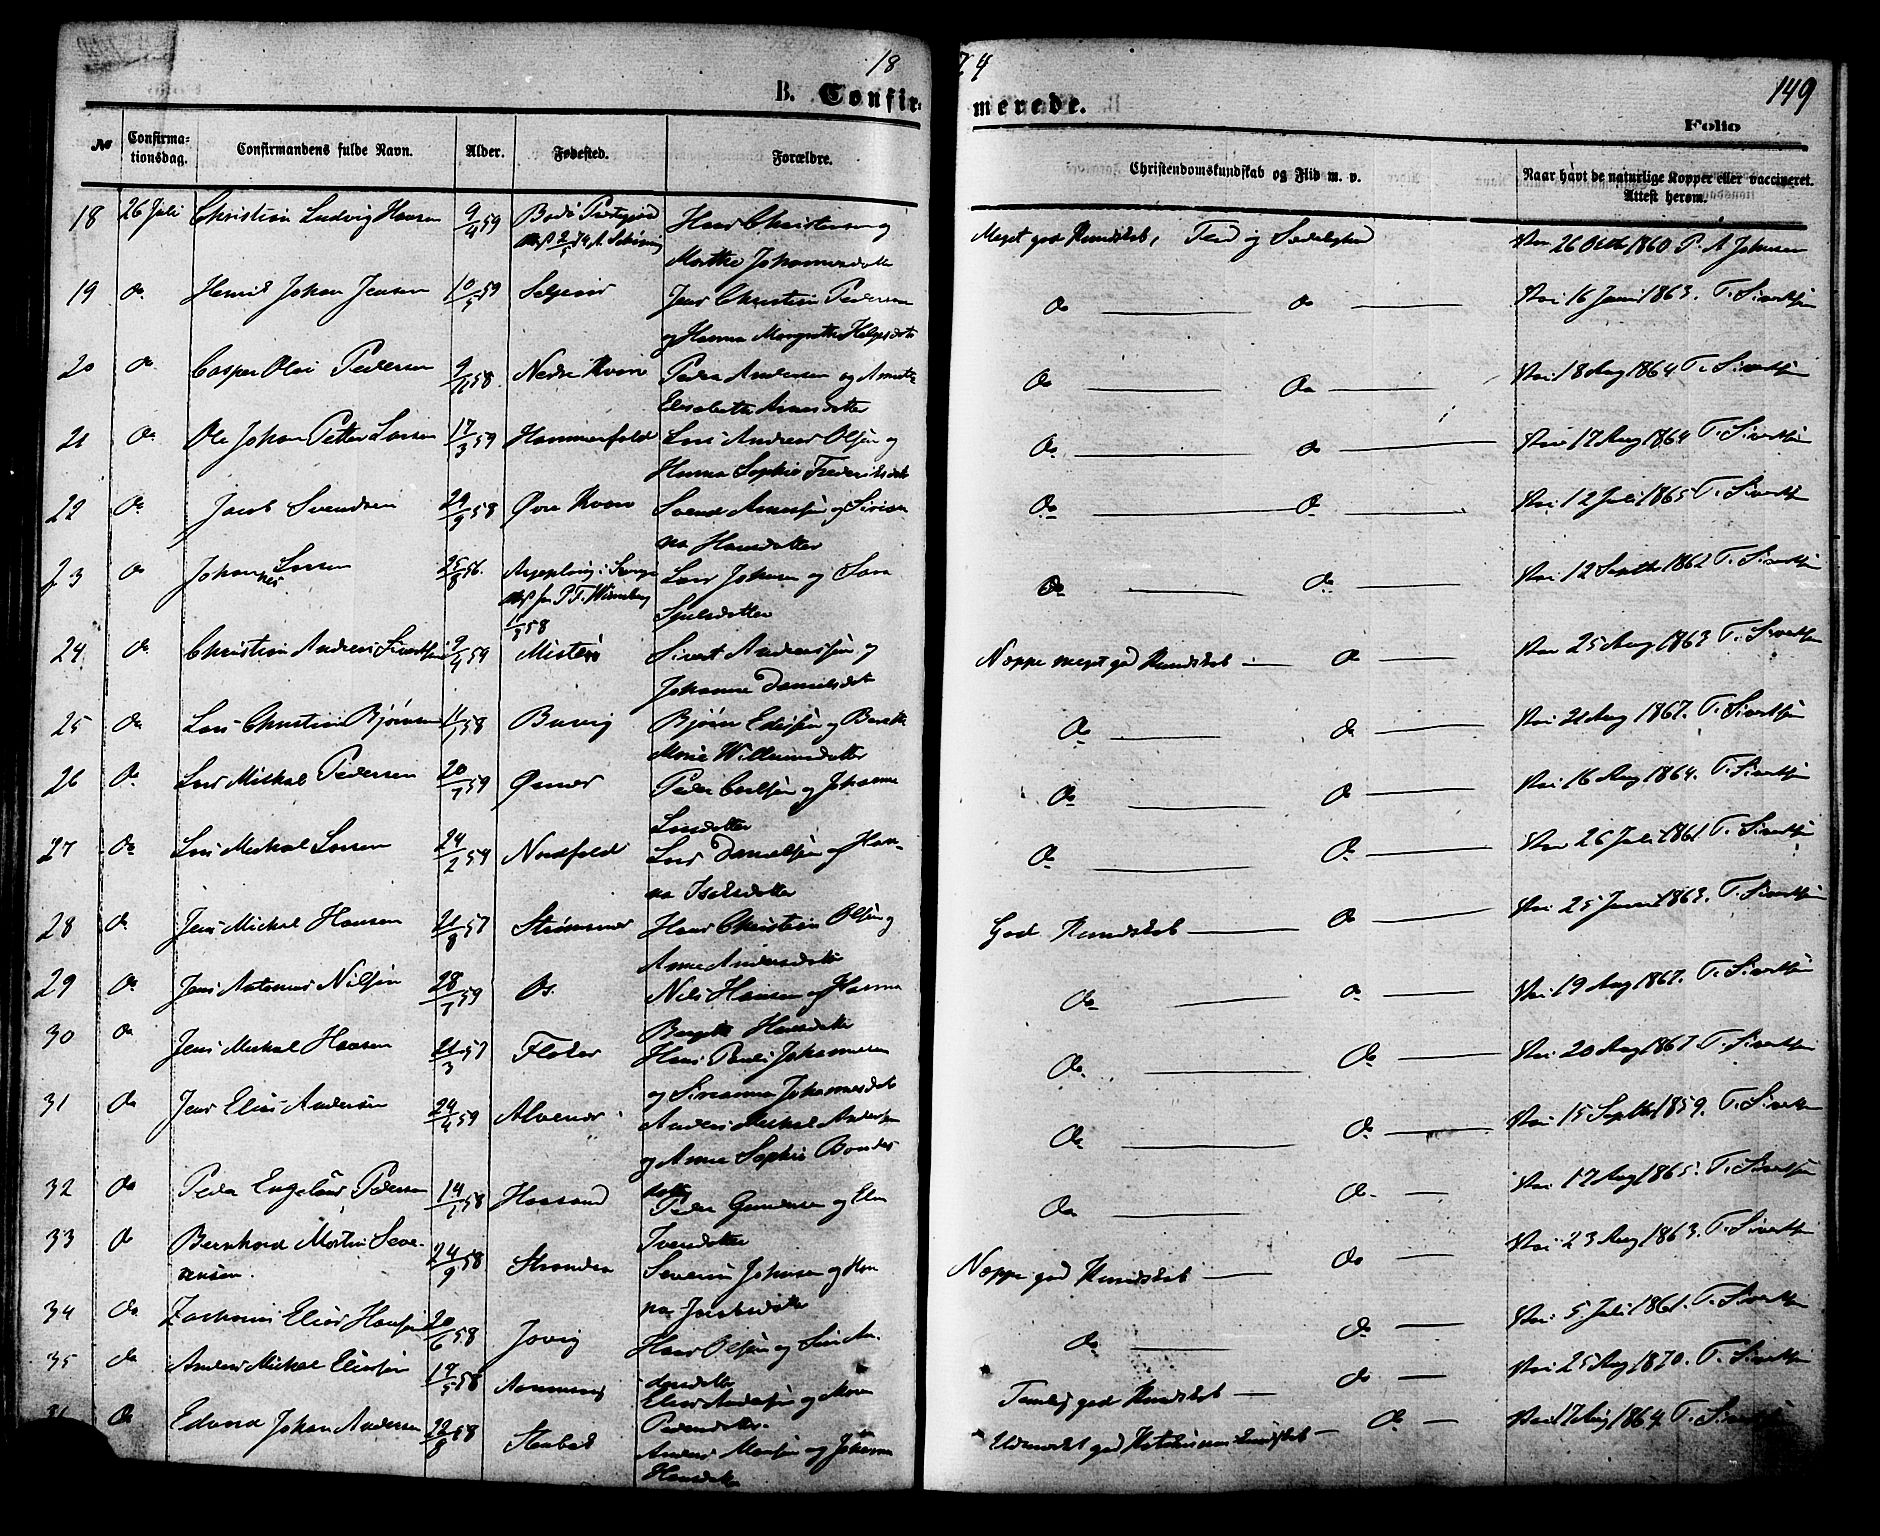 18 74
149
B. Confirmerede.
Folio
No
Confirmationsdag.
Confirmandens fulde Navn.
Alder.
Fødested.
Forældre.
Christendomskundskab og Flid m. v.
Naar havt de naturlige Kopper eller vaccineret.
Attest herom.
18 26 Juli Christian Ludvig Hansen 9/4 59 Bodø Hans Christensen og
Marthe Johannesdatter
Meget god Kundskab, Flid og Sædelighed 26 Octb 1860 P. A Johnsen
19 Do Henrik Johan Jensen 10/5 59 Seljevir Jens Christian Pedersen
og Hanna Margrethe Helgesdatter
Do Do Vac 16 Juni 1863. T. Sivertsen
20 Do Casper Olai Pedersen 9/11 58. Nedre Kvæn Peder Andersen og Anne
Elisabeth Arnesdatter
Do Do Vac 18 Aug 1864 T. Sivertsen
21 Do Ole Johan Petter Larsen 17/3 59 Hammerfold Lars Andreas Olsen og
Hanna Sophie Frederiksdatter
Do Do Vac 17 Aug 1864 T. Sivertsen
22 Do Jacob Svendsen 29/9 58 Øvre Kvæn Svend Arnesen og Sirian
na Hansdatter
Do Do Vac 12 Juli 1865 T. Sivertsen
23 Do Johannes Larsen 25/8 56. Lars Johnsen og Sara
Sjulsdatter
Do Do Vac 12 Septbr 1862 T. Sivertsen
24 Do Christian Andreas Sivertsen 9/4 59 Misten Sivert Anderssen og
Johanna Danielsdat
Neppe meget god Kundskab Do Vac 25 Aug 1863 T. Sivertsen
25 Do Lars Christian Bjørnsen 11/1 58 Buvig Bjørn Edissen og Berethe
Marie Willumsdatter
Do Do Vac 21 Aug 1867. T. Sivertsen
26 Do Lars Mikal Pedersen 20/7 59 Øsnes Peder Carlsen og Johanna
Larsdatter
Do Do Vac 16 Aug 1864. T. Sivertsen
27 Do Lars Mikal Larsen 24/2 59 Nordfold Lars Danielsen og Han-
na Isaksdatter
Do Do Vac 26 Juli 1861 T. Sivertsen
28 Do Jens Mikal Hansen 21/8 57 Strømsnes Hans Christian Olsen og
Anne Andersdatter
God Kundskab Do Vac 25 Juni 1863. T. Sivertsen
29 Do Jens Antonius Nilsen 28/7 59 Os. Nils Hansen og Hanna
Birgitte Hansdatter
Do Do Vac 19 Aug 1867. T. Sivertsen
30 Do Jens Mikal Hansen 21/3 57 Flaker Hans Paul Johannesen
og Sirianna Johannesdat
Do Do Vac 20 Aug 1867 T. Sivertsen
31 Do Jens Elias Andersen 24/4 59 Alvenes Anders Mikal Andersen
og Anne Sophie Bendes
datter
Do Do Vac 15 Septbr 1859. T. Sivertsen
32 Do Peder Engelbrt Pedersen 14/1 58 Haasand Peder Gundersen og Elen
Iversdatter
Do Do Vac 17 Aug 1865. T. Sivertsen
33 Do Bernhard Morten Seve-
rinsen. 24/9 58 Stranden Severin Johnsen og Han
na Jacobsdatter
Neppe god Kundskab Do Vac 23 Aug 1863. T. Sivertsen
34 Do Zacharias Elias Hansen 20/6 58 Jovig Hans Olsen og Siri An-
dersdatter
Do Do Vac 5 Juli 1861. T. Sivertsen
35 Do Anders Mikal Eliassen 19/5 58 Elias Andersen og Maren
Pedersdatter.
Temlig god Kundskab Do Vac 25 Aug 1870. T. Sivertsen
Do Edvard Johan Andersen 22/8 58 Stenbak Anders Monsen og Johanna
Hansdatter
Udmærket god Do Vac 17 Aug 1864. T. Sivertsen